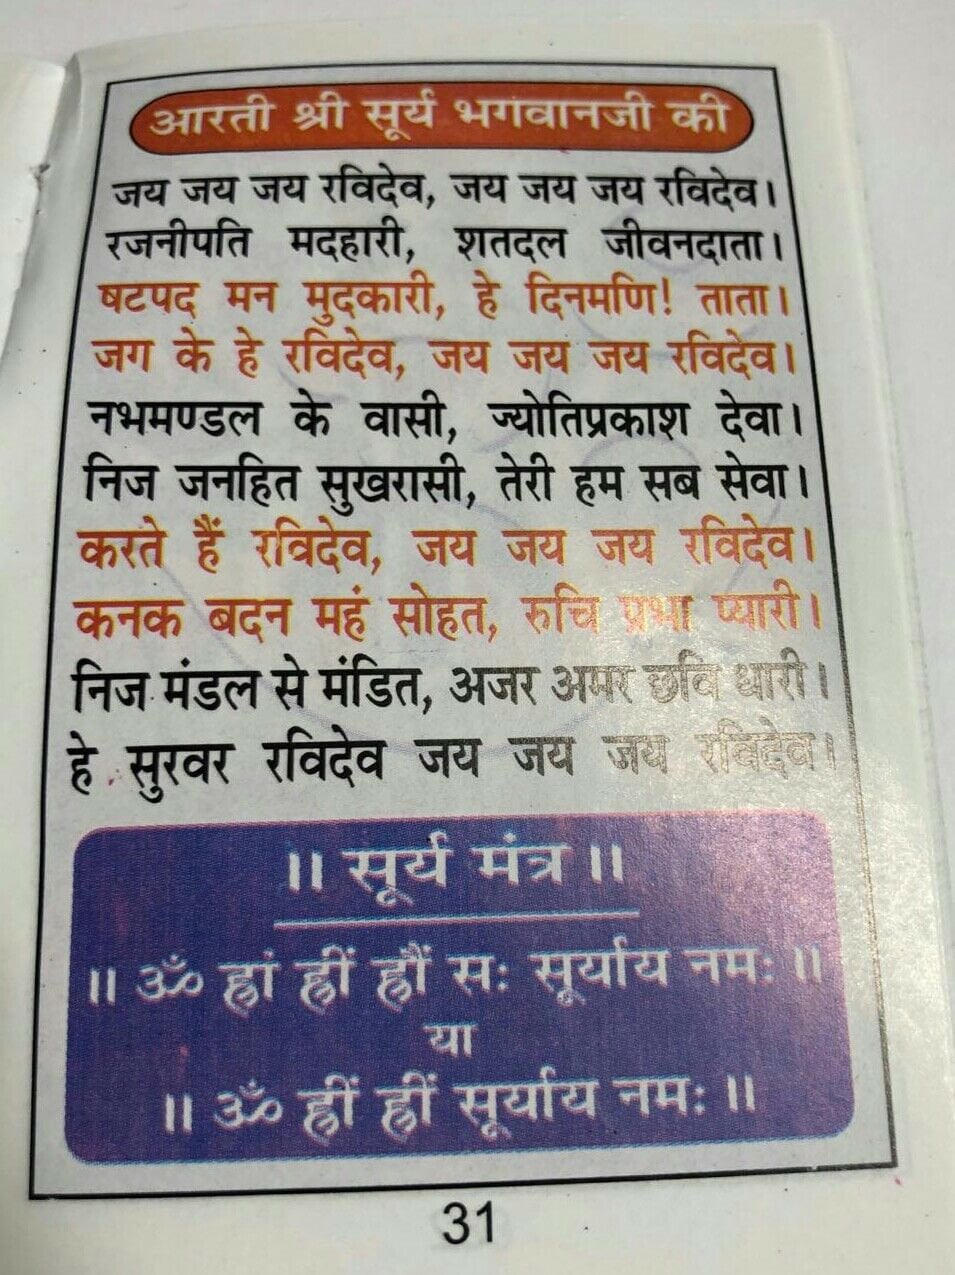 आरती श्री सूर्य भगवानजी की
जय जय जय रविदेव, जय जय जय रविदेव।
रजनीपति मदहारी, शतदल जीवनदाता।
षटपद मन मुदकारी, हे दिनमणि! ताता।
जग के हे रविदेव, जय जय जय रविदेव।
नभमण्डल के वासी, ज्योतिप्रकाश देवा।
निज जनहित सुखरासी, तेरी हम सब सेवा।
करते हैं रविदेव, जय जय जय रविदेव।
कनक बदन महं सोहत, रुचि प्रभा प्यारी।
निज मंडल से मंडित, अजर अमर छवि धारी।
हे सुरवर रविदेव जय जय जय रविदेव।
॥ सूर्य मंत्र ॥
॥ ॐ ह्रां ह्रीं ह्रौं सः सूर्याय नमः ॥
या
॥ ॐ ह्रीं ह्रीं सूर्याय नमः ॥
31